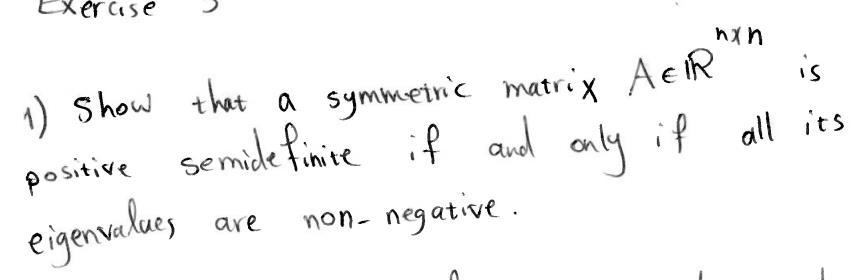 Exercise
1) Show that a symmetric matrix A ∈ ℝ^{n×n} is
positive semidefinite if and only if all its
eigenvalues are non-negative.